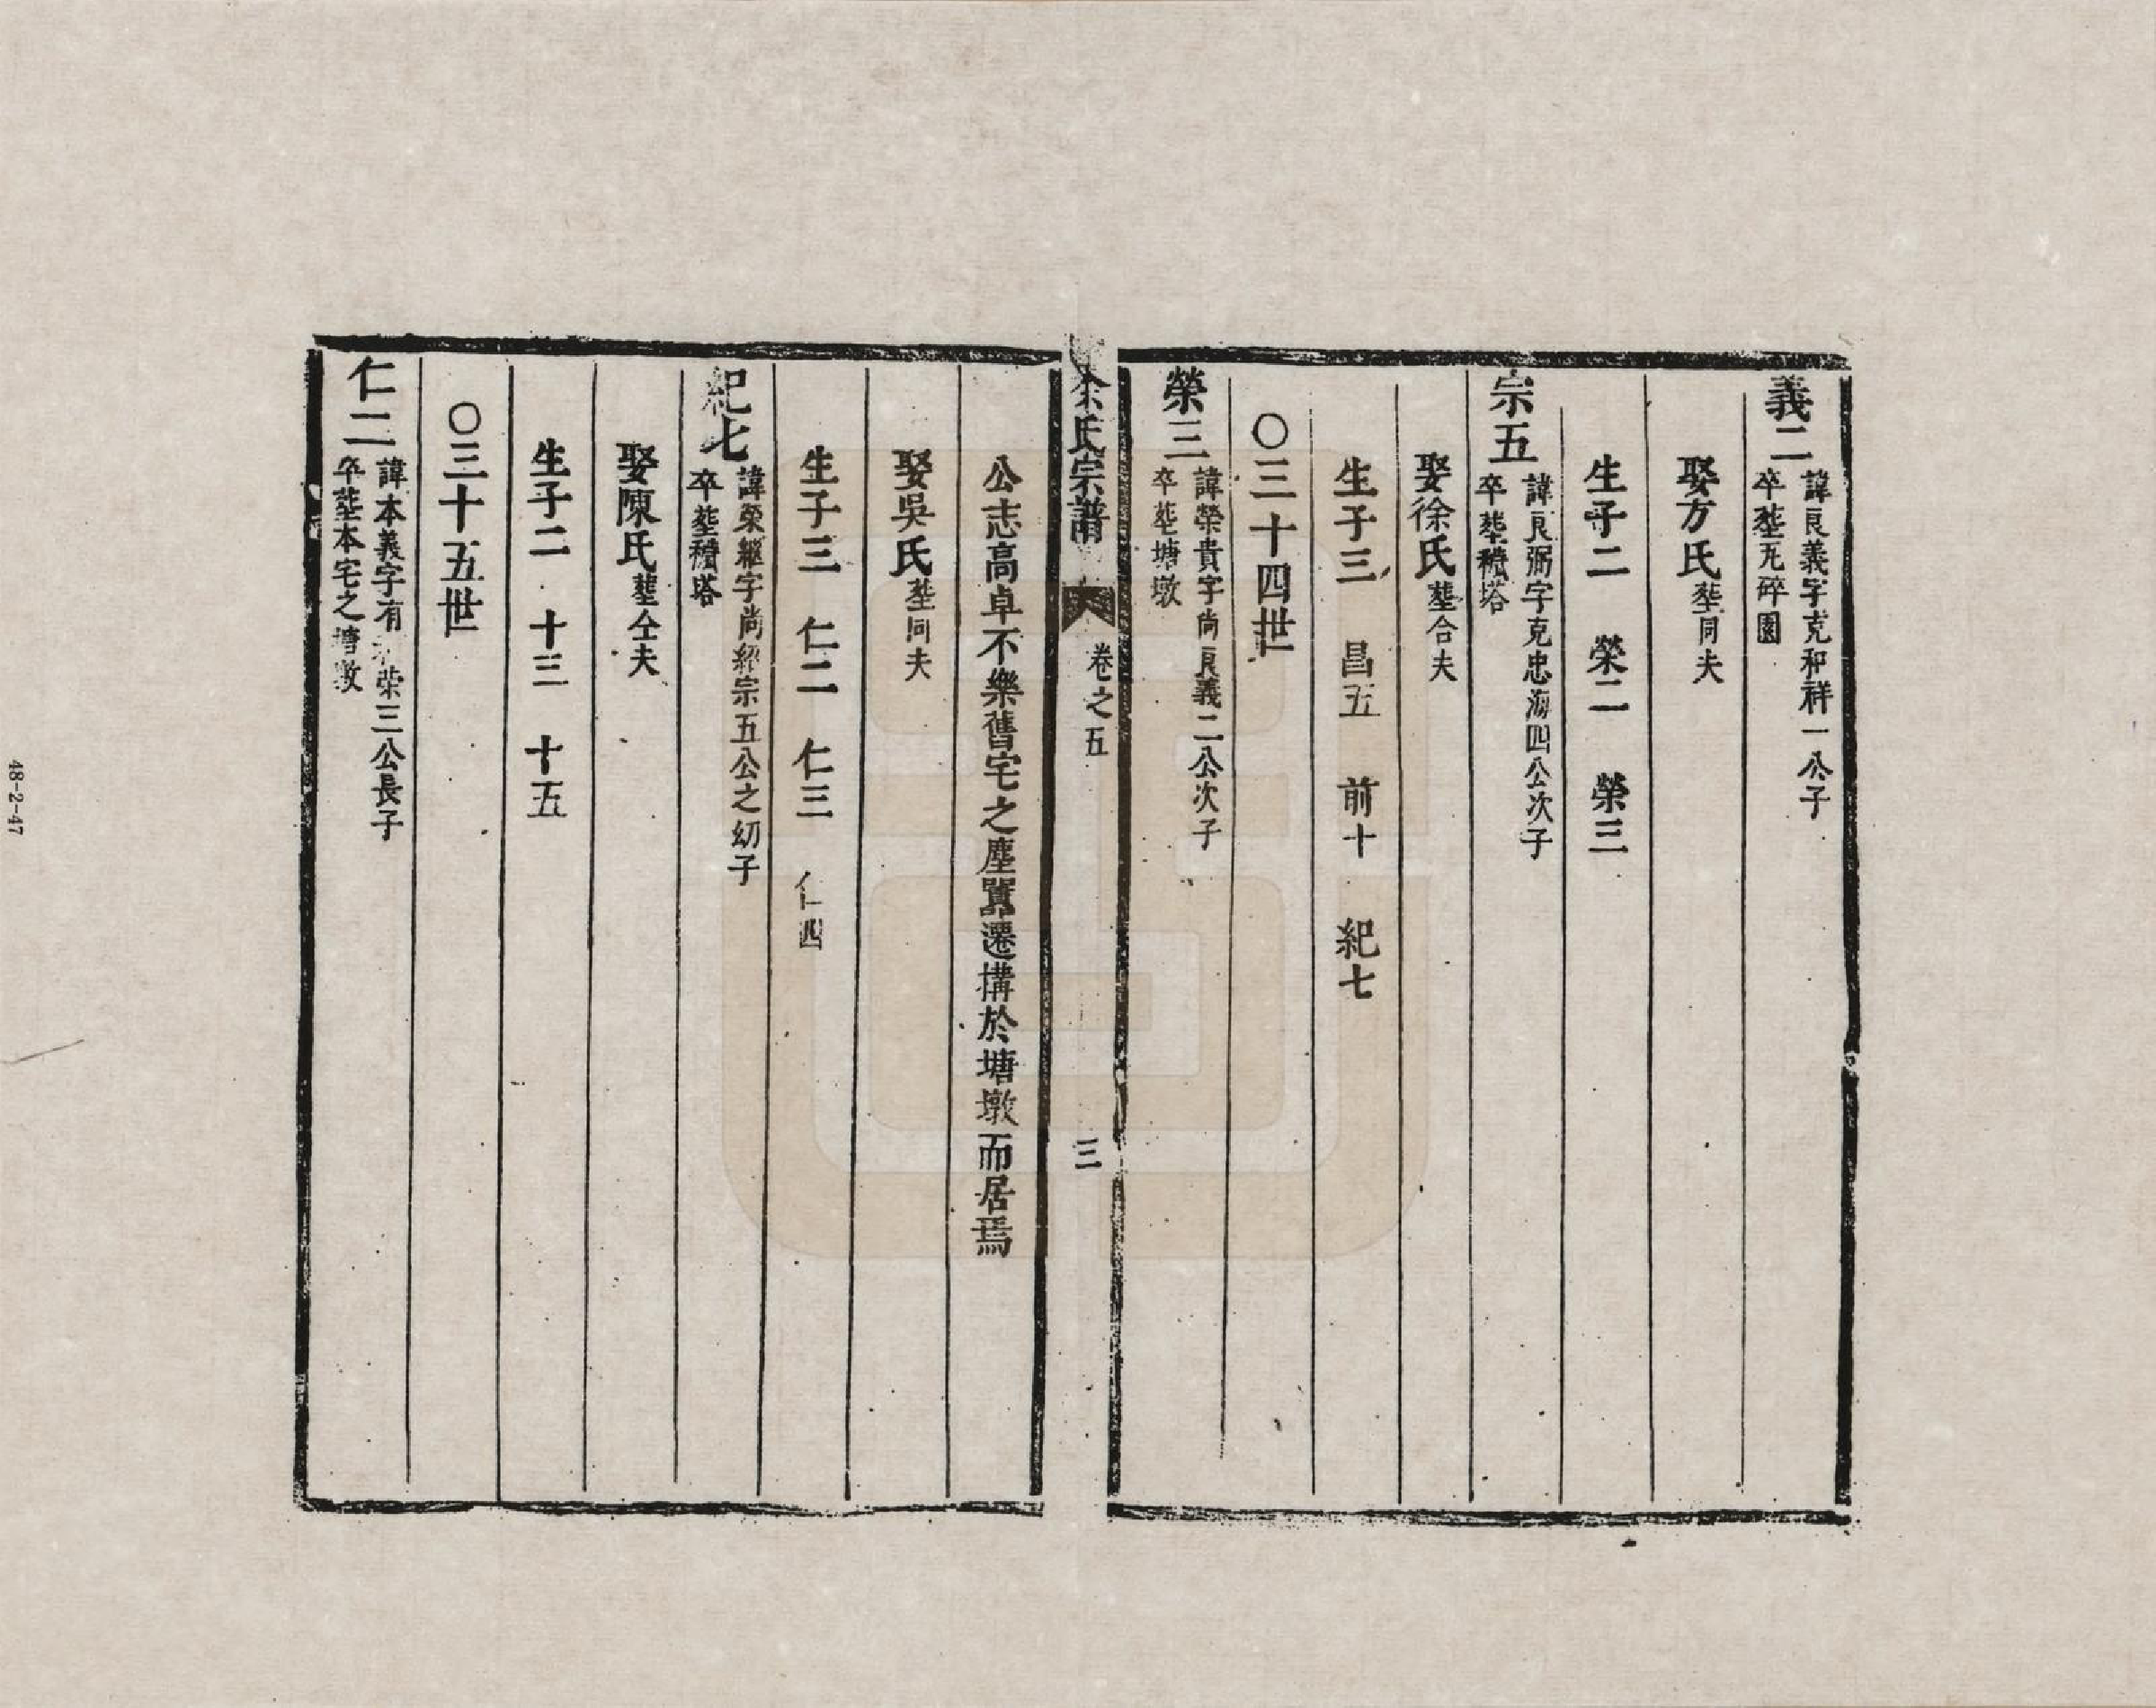 義二
諱良義字克和祥一公子
卒塟瓦碎園
娶方氏塟同夫
生子二 榮二 榮三
宗五
諱良弼字克忠海四公次子
卒塟穳塔
娶徐氏塟合夫
生子三 昌五 前十 紀七
〇三十四世
榮三
諱榮貴字尚良義二公次子
卒塟塘墩
余氏宗譜 卷之五 三
公志高卓不樂舊宅之塵囂遷搆於塘墩而居焉
娶吳氏塟同夫
生子三 仁二 仁三 仁四
紀七
諱榮繼字尚紹宗五公之幼子
卒塟穳塔
娶陳氏塟仝夫
生子二 十三 十五
〇三十五世
仁二
諱本義字有榮三公長子
卒塟本宅之塘墩
48-2-47